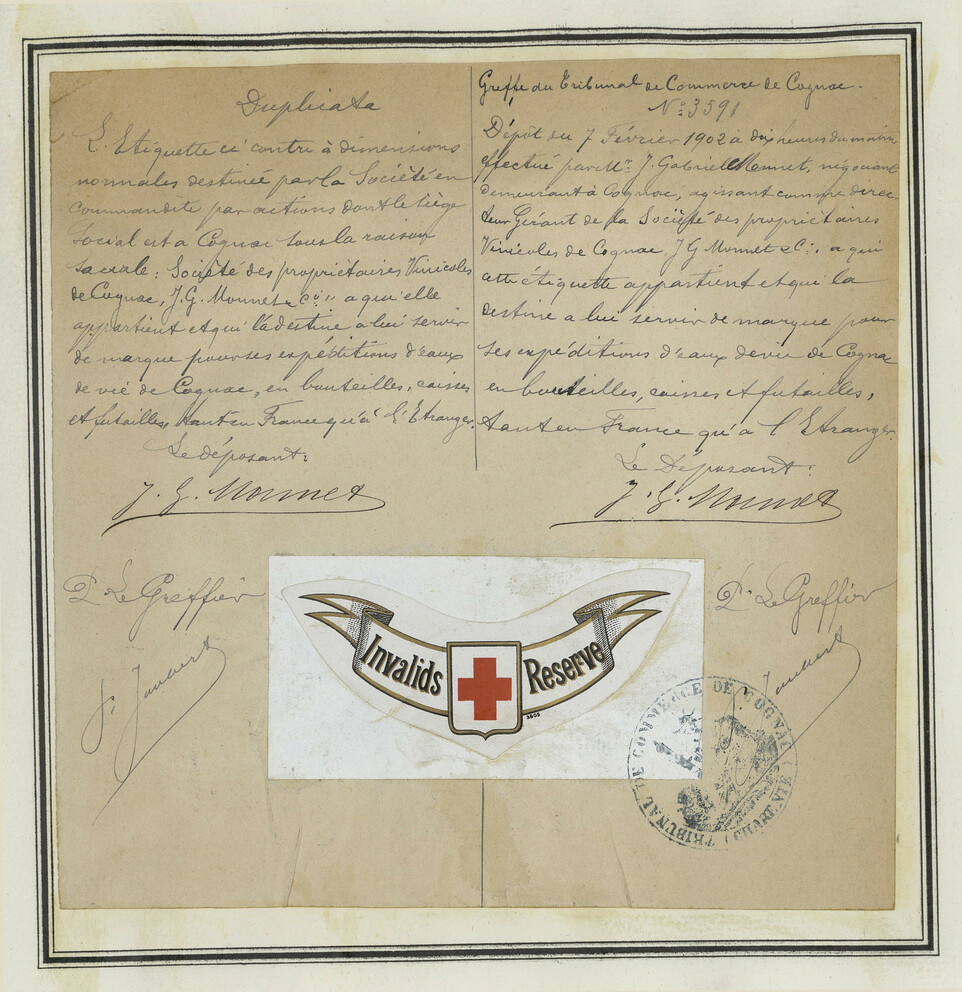 Duplicata
L'Etiquette ci contre à dimensions
normales destinée par la Société en
Commandite par actions dont le siège
Social est a Cognac sous la raison
sociale : Société des propriétaires Vinicoles
de Cognac, J. G. Monnet & Cie " a qu'elle
appartient et qui la destine a lui servir
de marque pour ses expéditions d'eaux
de vie de Cognac, en bouteilles, caisses
et futailles, tant en France qu'à l'Etranger.
Le déposant:
J. G. Monnet
Pr Le Greffier
Greffe du Tribunal de Commerce de Cognac.
No: 3591
Dépôt du 7 Février 1902 à dix heures du matin
effectué par Mr. J. Gabriel Monnet, négociant
demeurant à Cognac, agissant comme direc
teur Gérant de la Société des propriétaires
Vinicoles de Cognac, J G Monnet & Cie, a qui
cette étiquette appartient et qui la
destine a lui servir de marque pour
ses expéditions d'eaux de vie de Cognac
en bouteilles, caisses et futailles,
tant en France qu'a l'Etranger.
Le Déposant:
J. G. Monnet
Pr Le Greffier
Invalids Reserve
3505
TRIBUNAL DE COMMERCE DE COGNAC (CHARENTE)